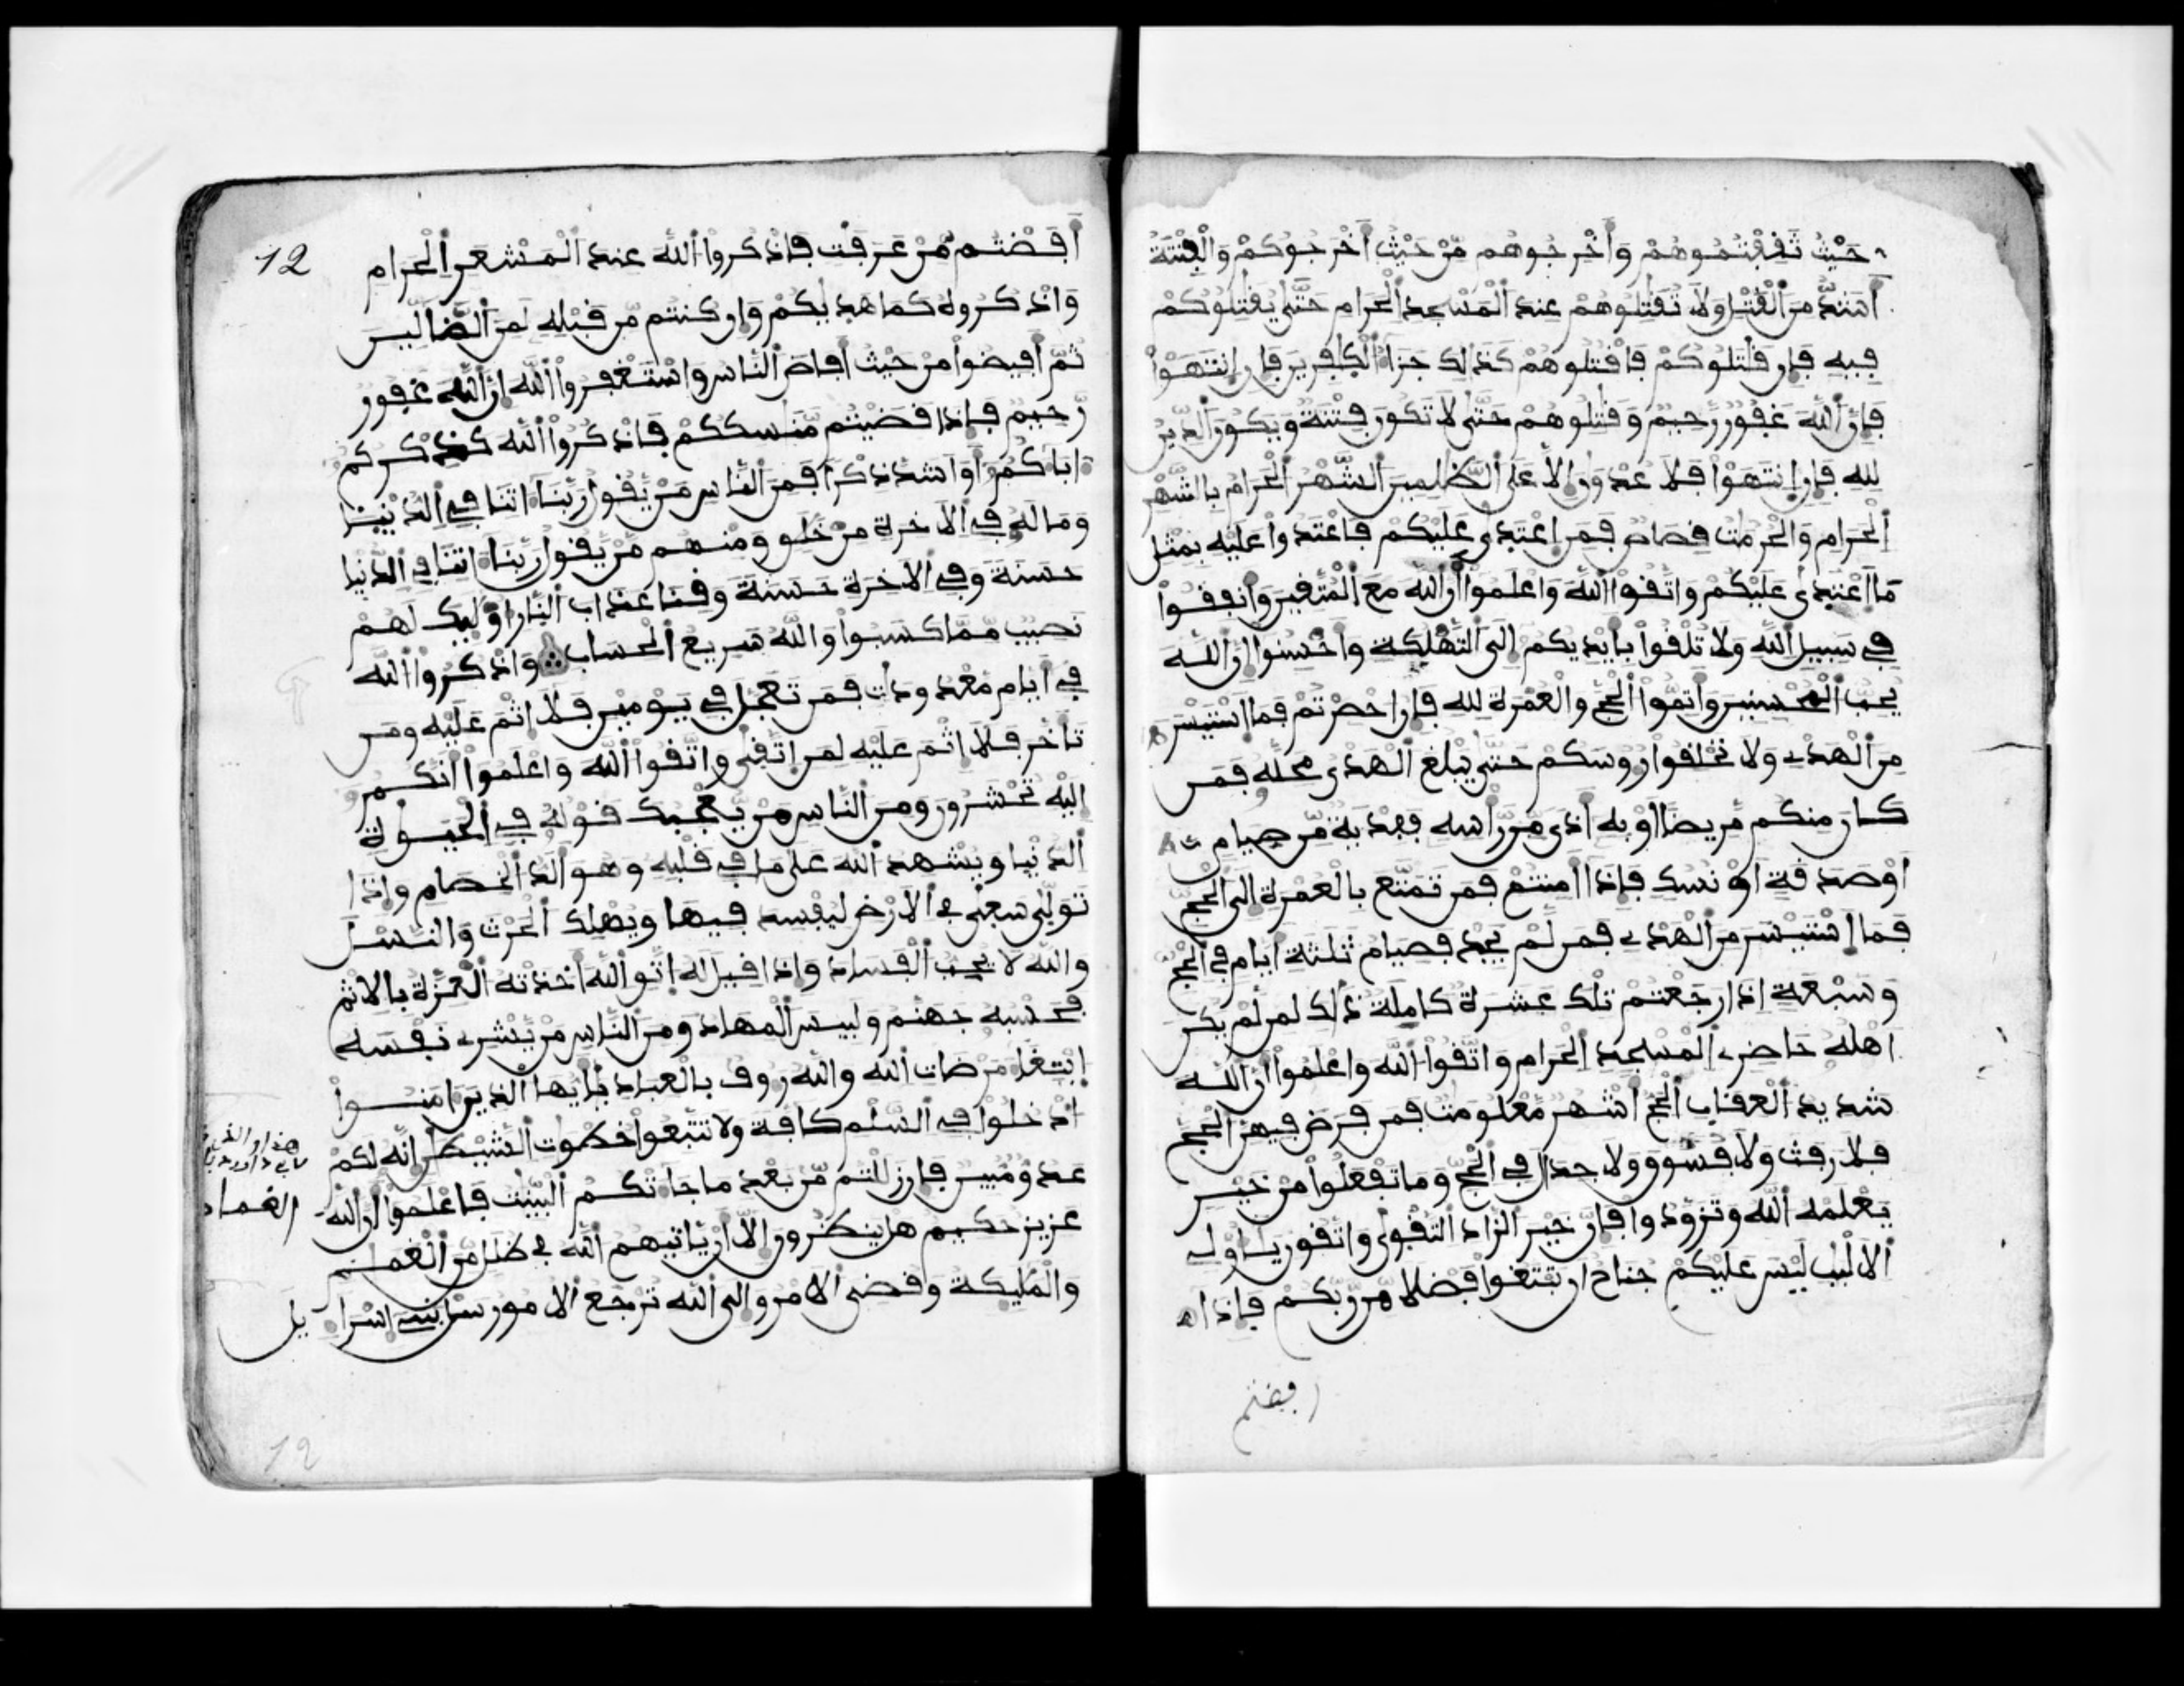 حَيْثُ ثَقِفْتُمُوهُمْ وَأَخْرِجُوهُم مِّنْ حَيْثُ أَخْرَجُوكُمْ وَالْفِتْنَةُ
أَشَدُّ مِنَ الْقَتْلِ وَلَا تُقَتِلُوهُمْ عِندَ الْمَسْجِدِ الْحَرَامِ حَتَّى يُقَتِلُوكُمْ
فِيهِ فَإِن قَتَلُوكُمْ فَاقْتُلُوهُمْ كَذَالِكَ جَزَاءُ الْكَافِرِينَ فَإِنِ انتَهَوْا
فَإِنَّ اللَّهَ غَفُورٌ رَّحِيمٌ وَقَتِلُوهُمْ حَتَّى لَا تَكُونَ فِتْنَةٌ وَيَكُونَ الدِّينُ
لِلهِ فَإِنِ انتَهَوْا فَلَا عُدْوَانَ إِلَّا عَلَى الظَّلِمِينَ الشَّهْرُ الْحَرَامُ بِالشَّهْرِ
الْحَرَامِ وَالْحُرُمَتُ قِصَاصٌ فَمَنِ اعْتَدِى عَلَيْكُمْ فَاعْتَدُوا عَلَيْهِ بِمِثْلِ
مَا اعْتَدِى عَلَيْكُمْ وَاتَّقُوا اللَّهَ وَاعْلَمُوا أَنَّ اللَّهَ مَعَ الْمُتَّقِينَ وَأَنفِقُوا
فِي سَبِيلِ اللَّهِ وَلَا تُلْقُوا بِأَيْدِيكُمْ إِلَى التَّهْلُكَةِ وَأَحْسِنُوا إِنَّ اللَّهَ
يُحِبُّ الْمُحْسِنِينَ وَأَتِمُّوا الْحَجَّ وَالْعُمْرَةَ لِلهِ فَإِنْ أُحْصِرْتُمْ فَمَا اسْتَيْسَرَ
مِنَ الْهَدْيِ وَلَا تَحْلِقُوا رُءُوسَكُمْ حَتَّى يَبْلُغَ الْهَدْيُ مَحِلَّهُ فَمَن
كَانَ مِنكُم مَّرِيضًا أَوْ بِهِ أَذًى مِّن رَّأْسِهِ فَفِدْيَةٌ مِّن صِيَامٍ
أَوْ صَدَقَةٍ أَوْ نُسُكٍ فَإِذَا أَمِنتُمْ فَمَن تَمَتَّعَ بِالْعُمْرَةِ إِلَى الْحَجِّ
فَمَا اسْتَيْسَرَ مِنَ الْهَدْيِ فَمَن لَّمْ يَجِدْ فَصِيَامُ ثَلَثَةِ أَيَّامٍ فِي الْحَجِّ
وَسَبْعَةٍ إِذَا رَجَعْتُمْ تِلْكَ عَشَرَةٌ كَامِلَةٌ ذَلِكَ لِمَن لَّمْ يَكُنْ
أَهْلُهُ حَاضِرِي الْمَسْجِدِ الْحَرَامِ وَاتَّقُوا اللَّهَ وَاعْلَمُوا أَنَّ اللَّهَ
شَدِيدُ الْعِقَابِ الْحَجُّ أَشْهُرٌ مَّعْلُومَتٌ فَمَن فَرَضَ فِيهِنَّ الْحَجَّ
فَلَا رَفَثَ وَلَا فُسُوقَ وَلَا جِدَالَ فِي الْحَجِّ وَمَا تَفْعَلُوا مِنْ خَيْرٍ
يَعْلَمْهُ اللَّهُ وَتَزَوَّدُوا فَإِنَّ خَيْرَ الزَّادِ التَّقْوَى وَاتَّقُونِ يَاأُوْلِي
الْأَلْبَبِ لَيْسَ عَلَيْكُمْ جُنَاحٌ أَن تَبْتَغُوا فَضْلًا مِّن رَّبِّكُمْ فَإِذَا
افضتم
أَفَضْتُم مِّنْ عَرَفَتٍ فَاذْكُرُوا اللَّهَ عِندَ الْمَشْعَرِ الْحَرَامِ
12
وَاذْكُرُوهُ كَمَا هَدِيكُمْ وَإِن كُنتُم مِّن قَبْلِهِ لَمِنَ الضَّالِّينَ
ثُمَّ أَفِيضُوا مِنْ حَيْثُ أَفَاضَ النَّاسُ وَاسْتَغْفِرُوا اللَّهَ إِنَّ اللَّهَ غَفُورٌ
رَّحِيمٌ فَإِذَا قَضَيْتُم مَّنَسِكَكُمْ فَاذْكُرُوا اللَّهَ كَذِكْرِكُمْ
ءَابَاءَكُمْ أَوْ أَشَدَّ ذِكْرًا فَمِنَ النَّاسِ مَنْ يَّقُولُ رَبَّنَا ءَاتِنَا فِي الدُّنْيَا
وَمَا لَهُ فِي الْأَخِرَةِ مِنْ خَلَقٍ وَمِنْهُم مَّنْ يَّقُولُ رَبَّنَا ءَاتِنَا فِي الدُّنْيَا
حَسَنَةً وَفِي الْأَخِرَةِ حَسَنَةً وَقِنَا عَذَابَ النَّارِ أُوْلَئِكَ لَهُمْ
نَصِيبٌ مِّمَّا كَسَبُوا وَاللَّهُ سَرِيعُ الْحِسَابِ وَاذْكُرُوا اللَّهَ
فِي أَيَّامٍ مَّعْدُودَاتٍ فَمَن تَعَجَّلَ فِي يَوْمَيْنِ فَلَا إِثْمَ عَلَيْهِ وَمَن
تَأَخَّرَ فَلَا إِثْمَ عَلَيْهِ لِمَنِ اتَّقِى وَاتَّقُوا اللَّهَ وَاعْلَمُوا أَنَّكُمْ
إِلَيْهِ تُحْشَرُونَ وَمِنَ النَّاسِ مَنْ يُّعْجِبُكَ قَوْلُهُ فِي الْحَيَوةِ
الدُّنْيَا وَيُشْهِدُ اللَّهَ عَلَى مَا فِي قَلْبِهِ وَهُوَ أَلَدُّ الْخِصَامِ وَإِذَا
تَوَلِّى سَعِى فِي الْأَرْضِ لِيُفْسِدَ فِيهَا وَيُهْلِكَ الْحَرْثَ وَالنَّسْلَ
وَاللَّهُ لَا يُحِبُّ الْفَسَادَ وَإِذَا قِيلَ لَهُ اتَّقِ اللَّهَ أَخَذَتْهُ الْعِزَّةُ بِالْإِثْمِ
فَحَسْبُهُ جَهَنَّمُ وَلَبِيسَ الْمِهَادُ وَمِنَ النَّاسِ مَنْ يَّشْرِي نَفْسَهُ
ابْتِغَاءَ مَرْضَاتِ اللَّهِ وَاللَّهُ رَءُوفٌ بِالْعِبَادِ يَأَيُّهَا الَّذِينَ ءَامَنُوا
ادْخُلُوا فِي السَّلْمِ كَافَّةً وَلَا تَتَّبِعُوا خُطُوَتِ الشَّيْطَنِ إِنَّهُ لَكُمْ
عَدُوٌّ مُّبِينٌ فَإِن زَلَلْتُم مِّن بَعْدِ مَا جَاءَتْكُمُ الْبَيِّنَتُ فَاعْلَمُوا أَنَّ اللَّهَ
عَزِيزٌ حَكِيمٌ هَلْ يَنظُرُونَ إِلَّا أَنْ يَّأْتِيَهُمُ اللَّهُ فِي ظُلَلٍ مِّنَ الْغَمَمِ
وَالْمَلَئِكَةُ وَقُضِيَ الْأَمْرُ وَإِلَى اللَّهِ تُرْجَعُ الْأُمُورُ سَلْ بَنِي إِسْرَاءِيلَ
الغمام
12